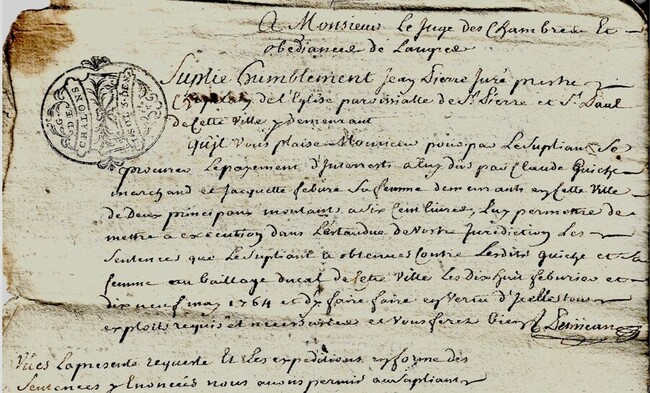 A Monsieur Le Juge des Chambres Et
obediances de Langres
Suplie humblement Jean Pierre Juré prestre
de l'Eglise paroissialle de St. Pierre et St. Paul
de Cette Ville y demeurant
G. DE CHALONS
SOLS DE
qu'il Vous plaise Monsieur pour par Le Supliant Se
procurer Le payement d'Interrests a Luy dus par Claude Guiche
marchand et Jacquette febure Sa femme demeurants en Cette Ville
de Deux principaux montant a Six Cent livres, Luy permettre de
mettre a execution dans L'estandue de Vostre Jurediction Les
Sentences que Le Supliant a obtenues Contre Lesdits guiche et sa
femme au baillage ducal de Cette Ville Les dix huit feburier et
dix neuf may 1764 et d'y faire faire en Vertu d'Icelles tous
exploits requis et necessaires et Vous ferez bien
Vües La presente requeste Et Les expeditions en forme des
Sentences y Enoncées nous avons permis au Supliant